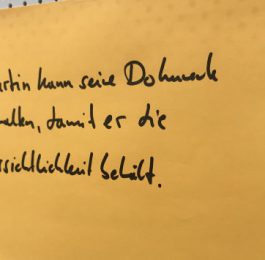 artin kann seine Dokumente
walten, damit er die
rsichtlichkeit behält.